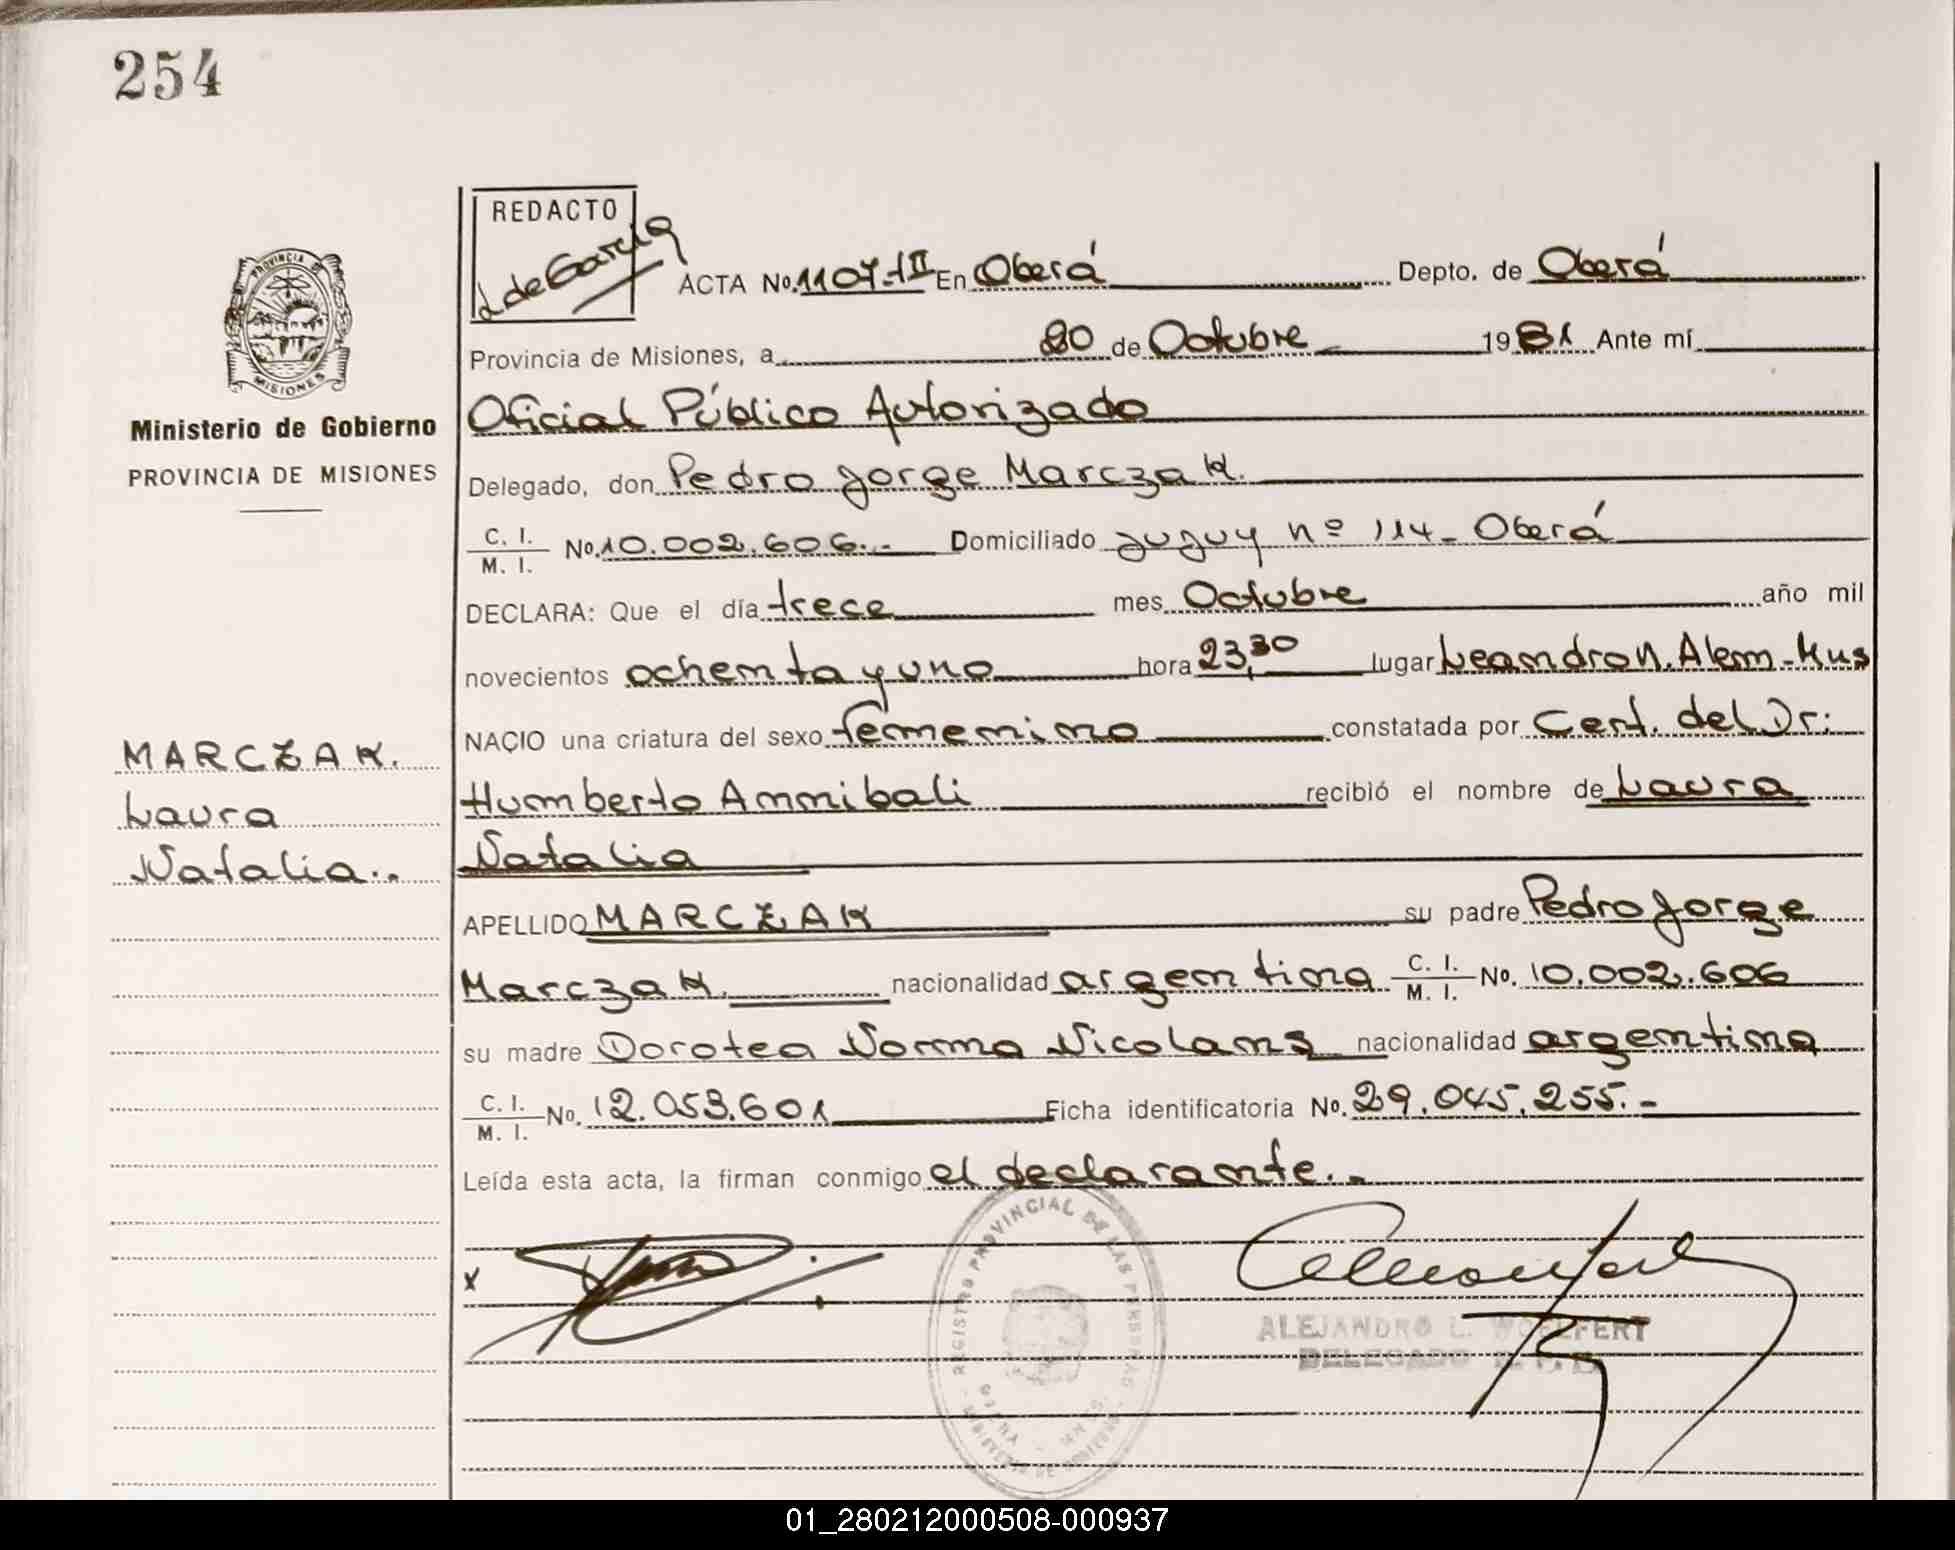 254
REDACTO
L de Garcia
ACTA No. 1107-III En Oberá Depto. de Oberá
Provincia de Misiones, a 20 de Octubre 1981 Ante mí
Oficial Público Autorizado
Delegado, don Pedro Jorge Marczak.
C. I. / M. I. No. 10.002.606.- Domiciliado Jujuy nº 114- Oberá
DECLARA: Que el día trece mes Octubre año mil
novecientos ochenta y uno hora 23,30 lugar Leandro N. Alem-Mus
NACIO una criatura del sexo femenino constatada por Cert. del Dr:
Humberto Annibali recibió el nombre de Laura
Natalia
APELLIDO MARCZAK su padre Pedro Jorge
Marczak. nacionalidad argentina C. I. / M. I. No. 10.002.606
su madre Dorotea Norma Nicolaus nacionalidad argentina
C. I. / M. I. No. 12.053.601 Ficha identificatoria No. 29.045.255.-
Leída esta acta, la firman conmigo el declarante.-
x
PROVINCIA DE
MISIONES
Ministerio de Gobierno
PROVINCIA DE MISIONES
MARCZAK.
Laura
Natalia..
REGISTRO PROVINCIAL DE LAS PERSONAS
MINISTERIO DE GOBIERNO
ALEJANDRO L. WOELFERT
DELEGADO
01_280212000508-000937